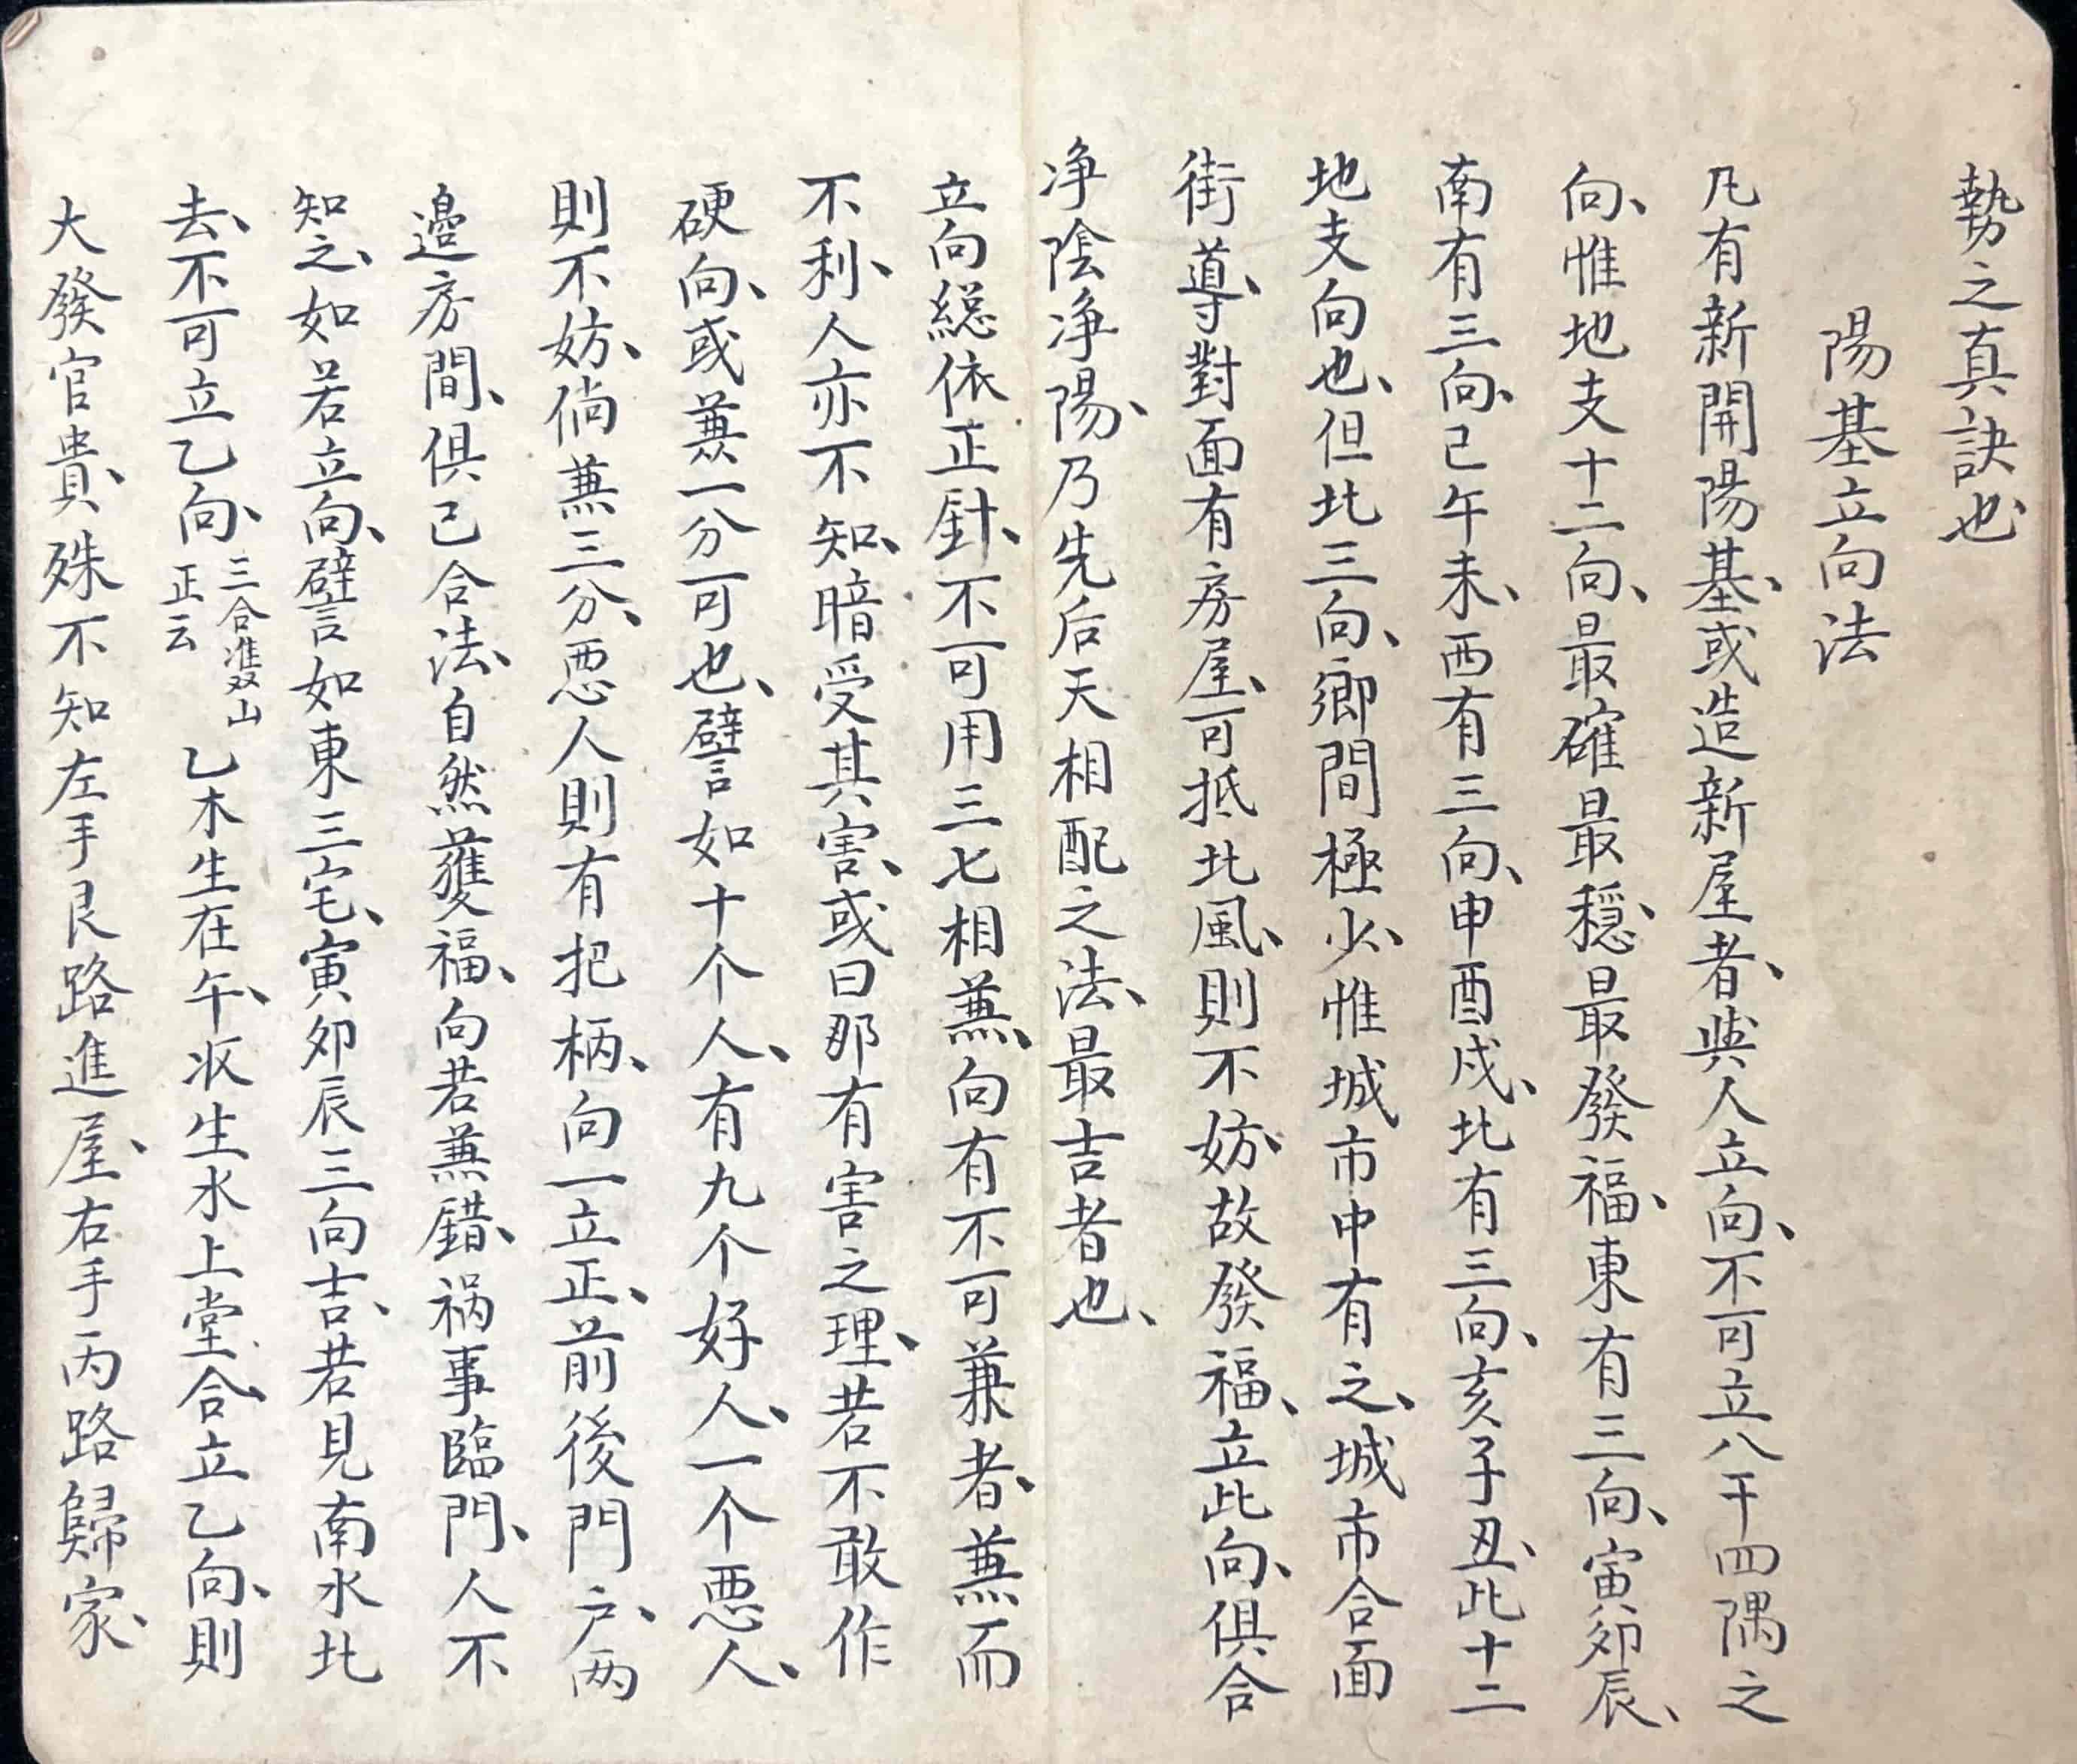 勢之真訣也、
陽基立向法
凡有新開陽基、或造新屋者、與人立向、不可立八干四隅之
向、惟地支十二向、最確最穩、最發福、東有三向、寅卯辰、
南有三向、巳午未、西有三向、申酉戌、北有三向、亥子丑、此十二
地支向也、但北三向、鄉間極少、惟城市中有之、城市合面
街導、對面有房屋、可抵北風、則不妨、故發福、立此向、俱合
净陰净陽、乃先后天相配之法、最吉者也、
立向緫依正針、不可用三七相兼、向有不可兼者、兼而
不利、人亦不知、暗受其害、或曰那有害之理、若不敢作
硬向、或兼一分可也、譬如十个人、有九个好人、一个惡人、
則不妨、倘兼三分、惡人則有把柄、向一立正、前後門户、两
邉房間、俱已合法、自然獲福、向若兼錯、祸事臨門、人不
知之、如若立向、譬如東三宅、寅卯辰三向吉、若見南水北
去、不可立乙向、三合雙山正云 乙木生在午、收生水上堂、合立乙向、則
大發官貴、殊不知左手艮路進屋、右手丙路歸家、